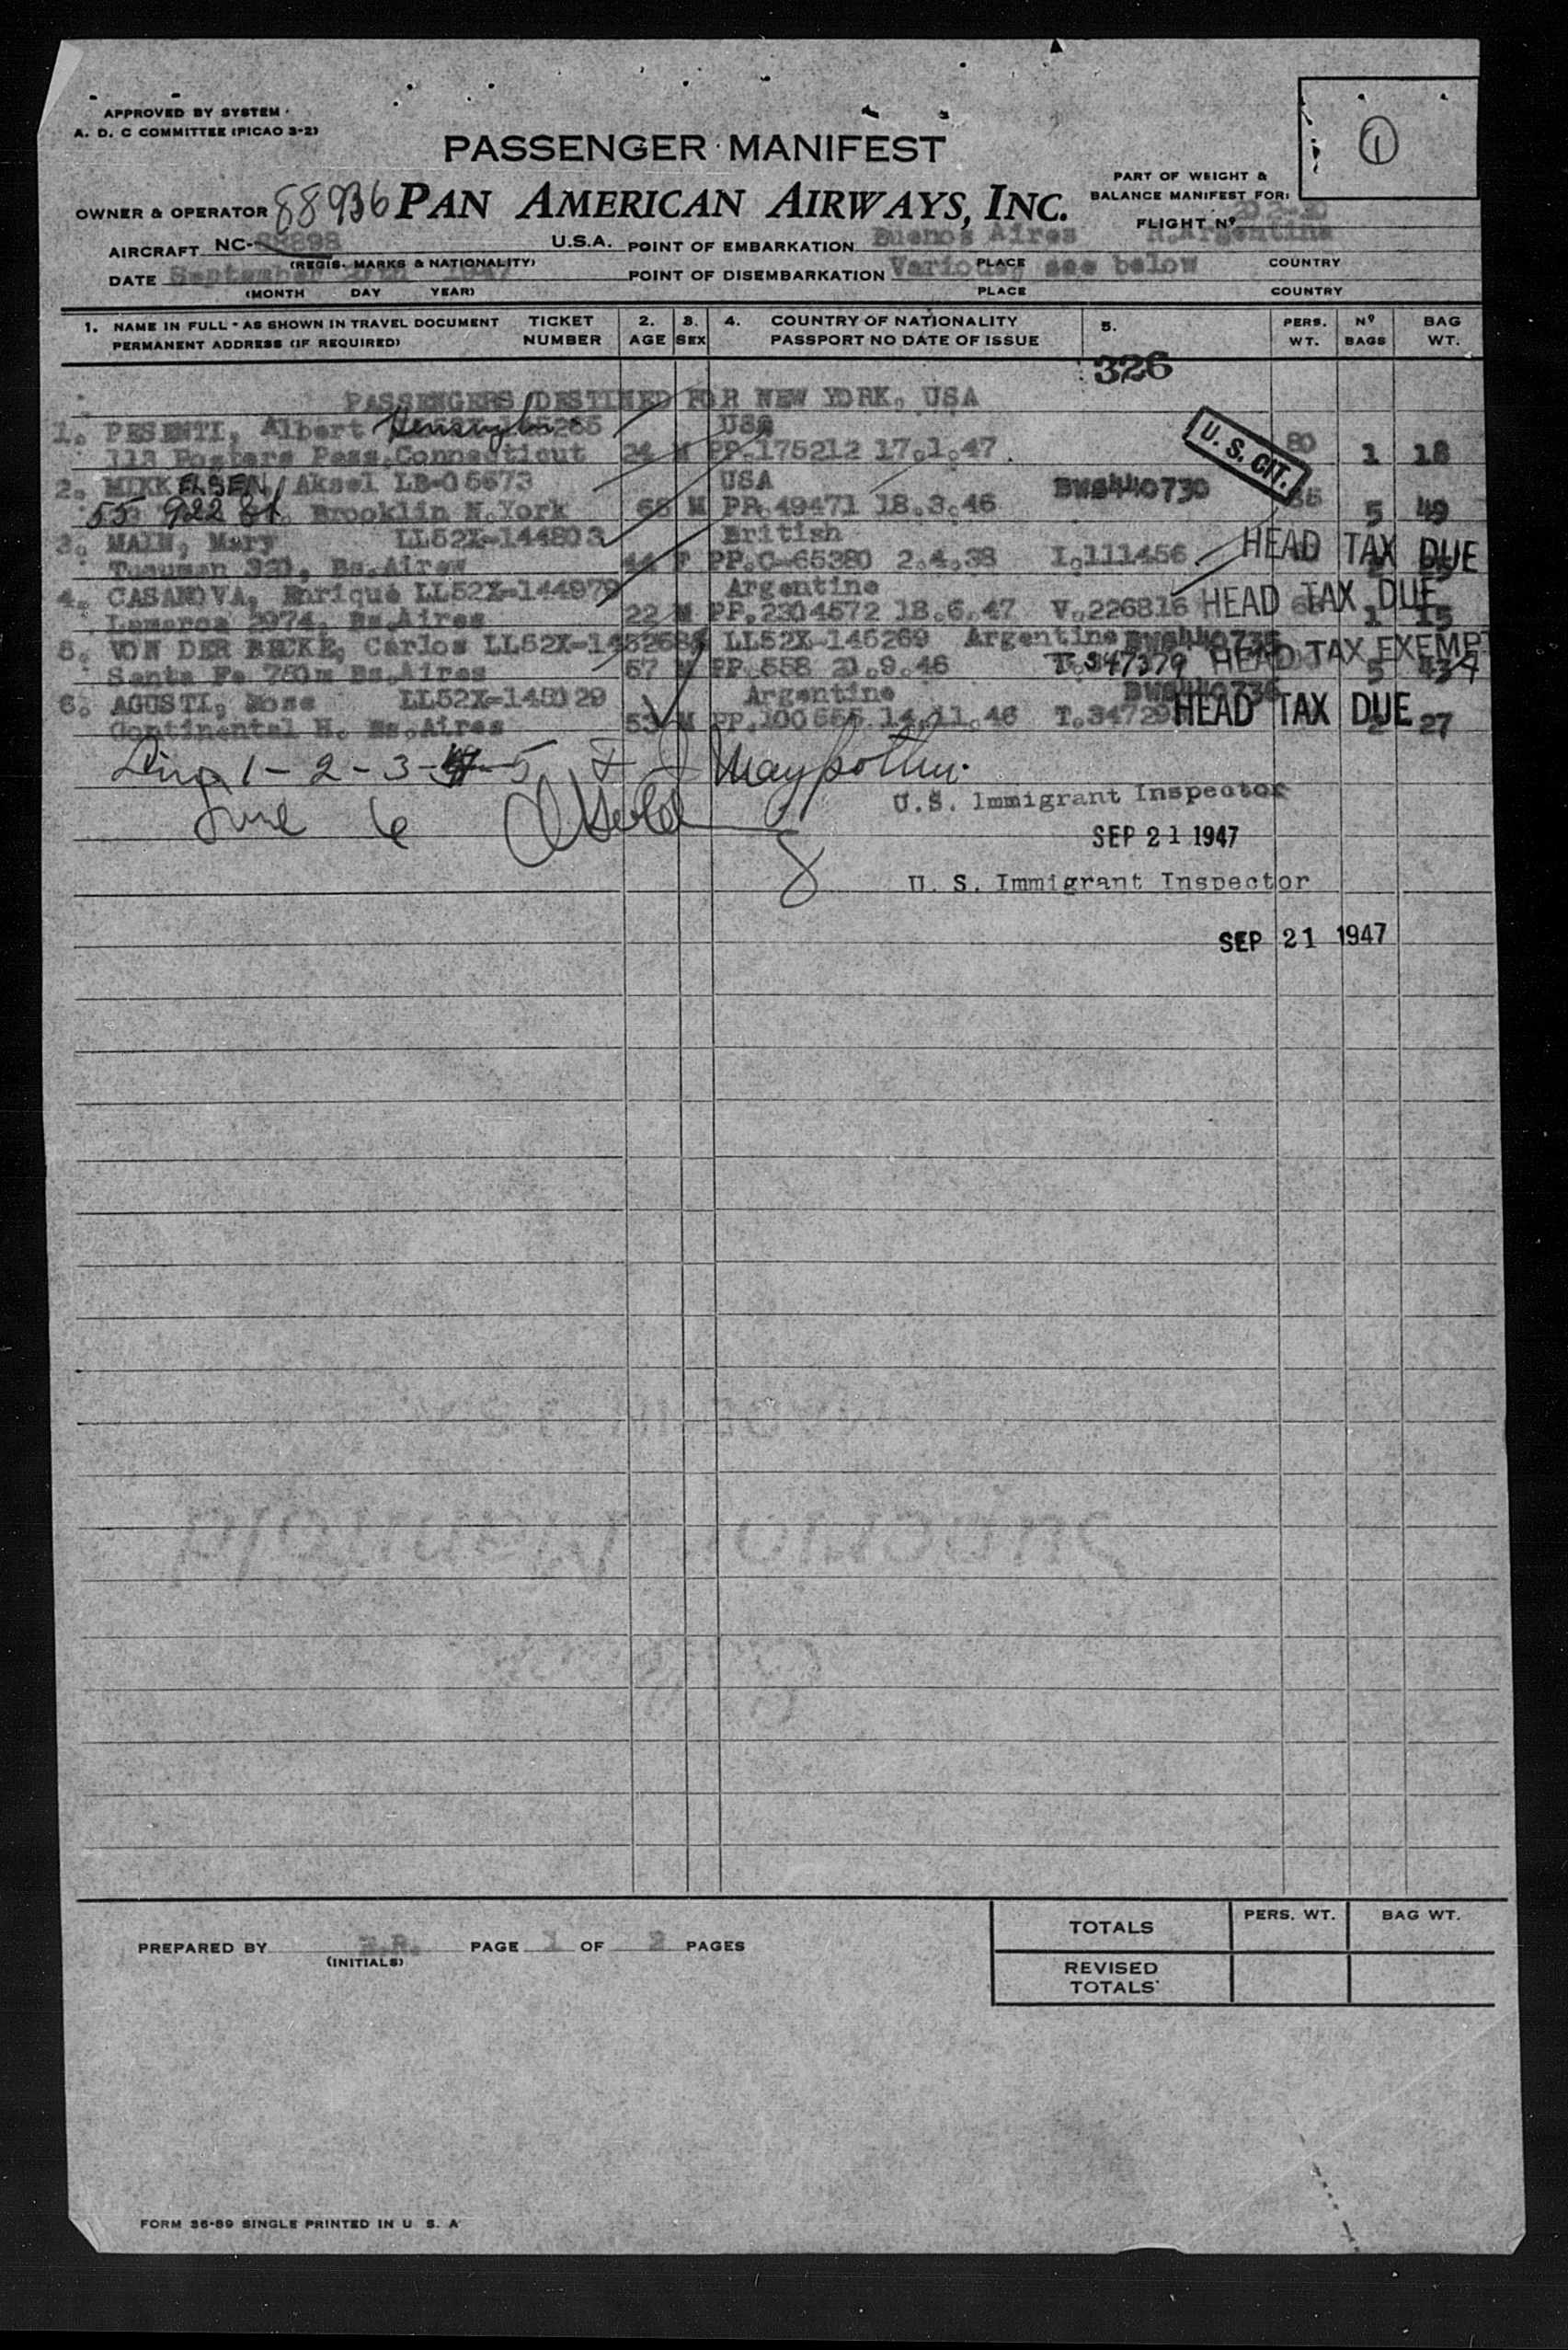 APPROVED BY SYSTEM
A. D. C COMMITTEE (PICAO 3-2)
1
PASSENGER MANIFEST
PART OF WEIGHT &
BALANCE MANIFEST FOR:
OWNER & OPERATOR 88936 PAN AMERICAN AIRWAYS, INC.
FLIGHT Nº
AIRCRAFT NC- U.S.A. POINT OF EMBARKATION Buenos Aires R.Argentina
(REGIS. MARKS & NATIONALITY) PLACE COUNTRY
DATE September 1947 POINT OF DISEMBARKATION Various, see below
(MONTH DAY YEAR) PLACE COUNTRY
1. NAME IN FULL - AS SHOWN IN TRAVEL DOCUMENT TICKET 2. 3. 4. COUNTRY OF NATIONALITY 5. PERS. Nº BAG
PERMANENT ADDRESS (IF REQUIRED) NUMBER AGE SEX PASSPORT NO DATE OF ISSUE WT. BAGS WT.
326
PASSENGERS DESTINED FOR NEW YORK, USA
1. PESENTI, Albert USA
113 Posters Pass, Connecticut 24 M PP.175212 17.1.47. U. S. CIT. 80 1 18
2. MIKKELSEN, Aksel LB-05673 USA BWS440730
55 922 St. Brooklin N.York 65 M PP.49471 18.3.46 5 49
3. MAIN, Mary LL52X-144803 British
Tucuman 320, Bs.Aires 44 F PP.C-65380 2.4.38 I.111456 HEAD TAX DUE
4. CASANOVA, Enrique LL52X-144979 Argentine
Lamarca 2974, Bs.Aires 22 M PP.2304572 18.6.47 V.226816 HEAD TAX DUE 1 15
5. VON DER BECKE, Carlos LL52X-145268 LL52X-145269 Argentine BWS440735
Santa Fe 750 Bs.Aires 57 M PP.558 20.9.46 T.347379 HEAD TAX EXEMPT 5
6. AGUSTI, Jose LL52X-145029 Argentine BWS440736
Continental H. Bs.Aires 53 M PP.100555 14.11.46 T.34729 HEAD TAX DUE 2 27
Line 1-2-3-4-5
U.S. Immigrant Inspector
Line 6
SEP 21 1947
U. S. Immigrant Inspector
SEP 21 1947
PREPARED BY PAGE 1 OF 2 PAGES
(INITIALS)
TOTALS PERS. WT. BAG WT.
REVISED
TOTALS
FORM 36-89 SINGLE PRINTED IN U S. A